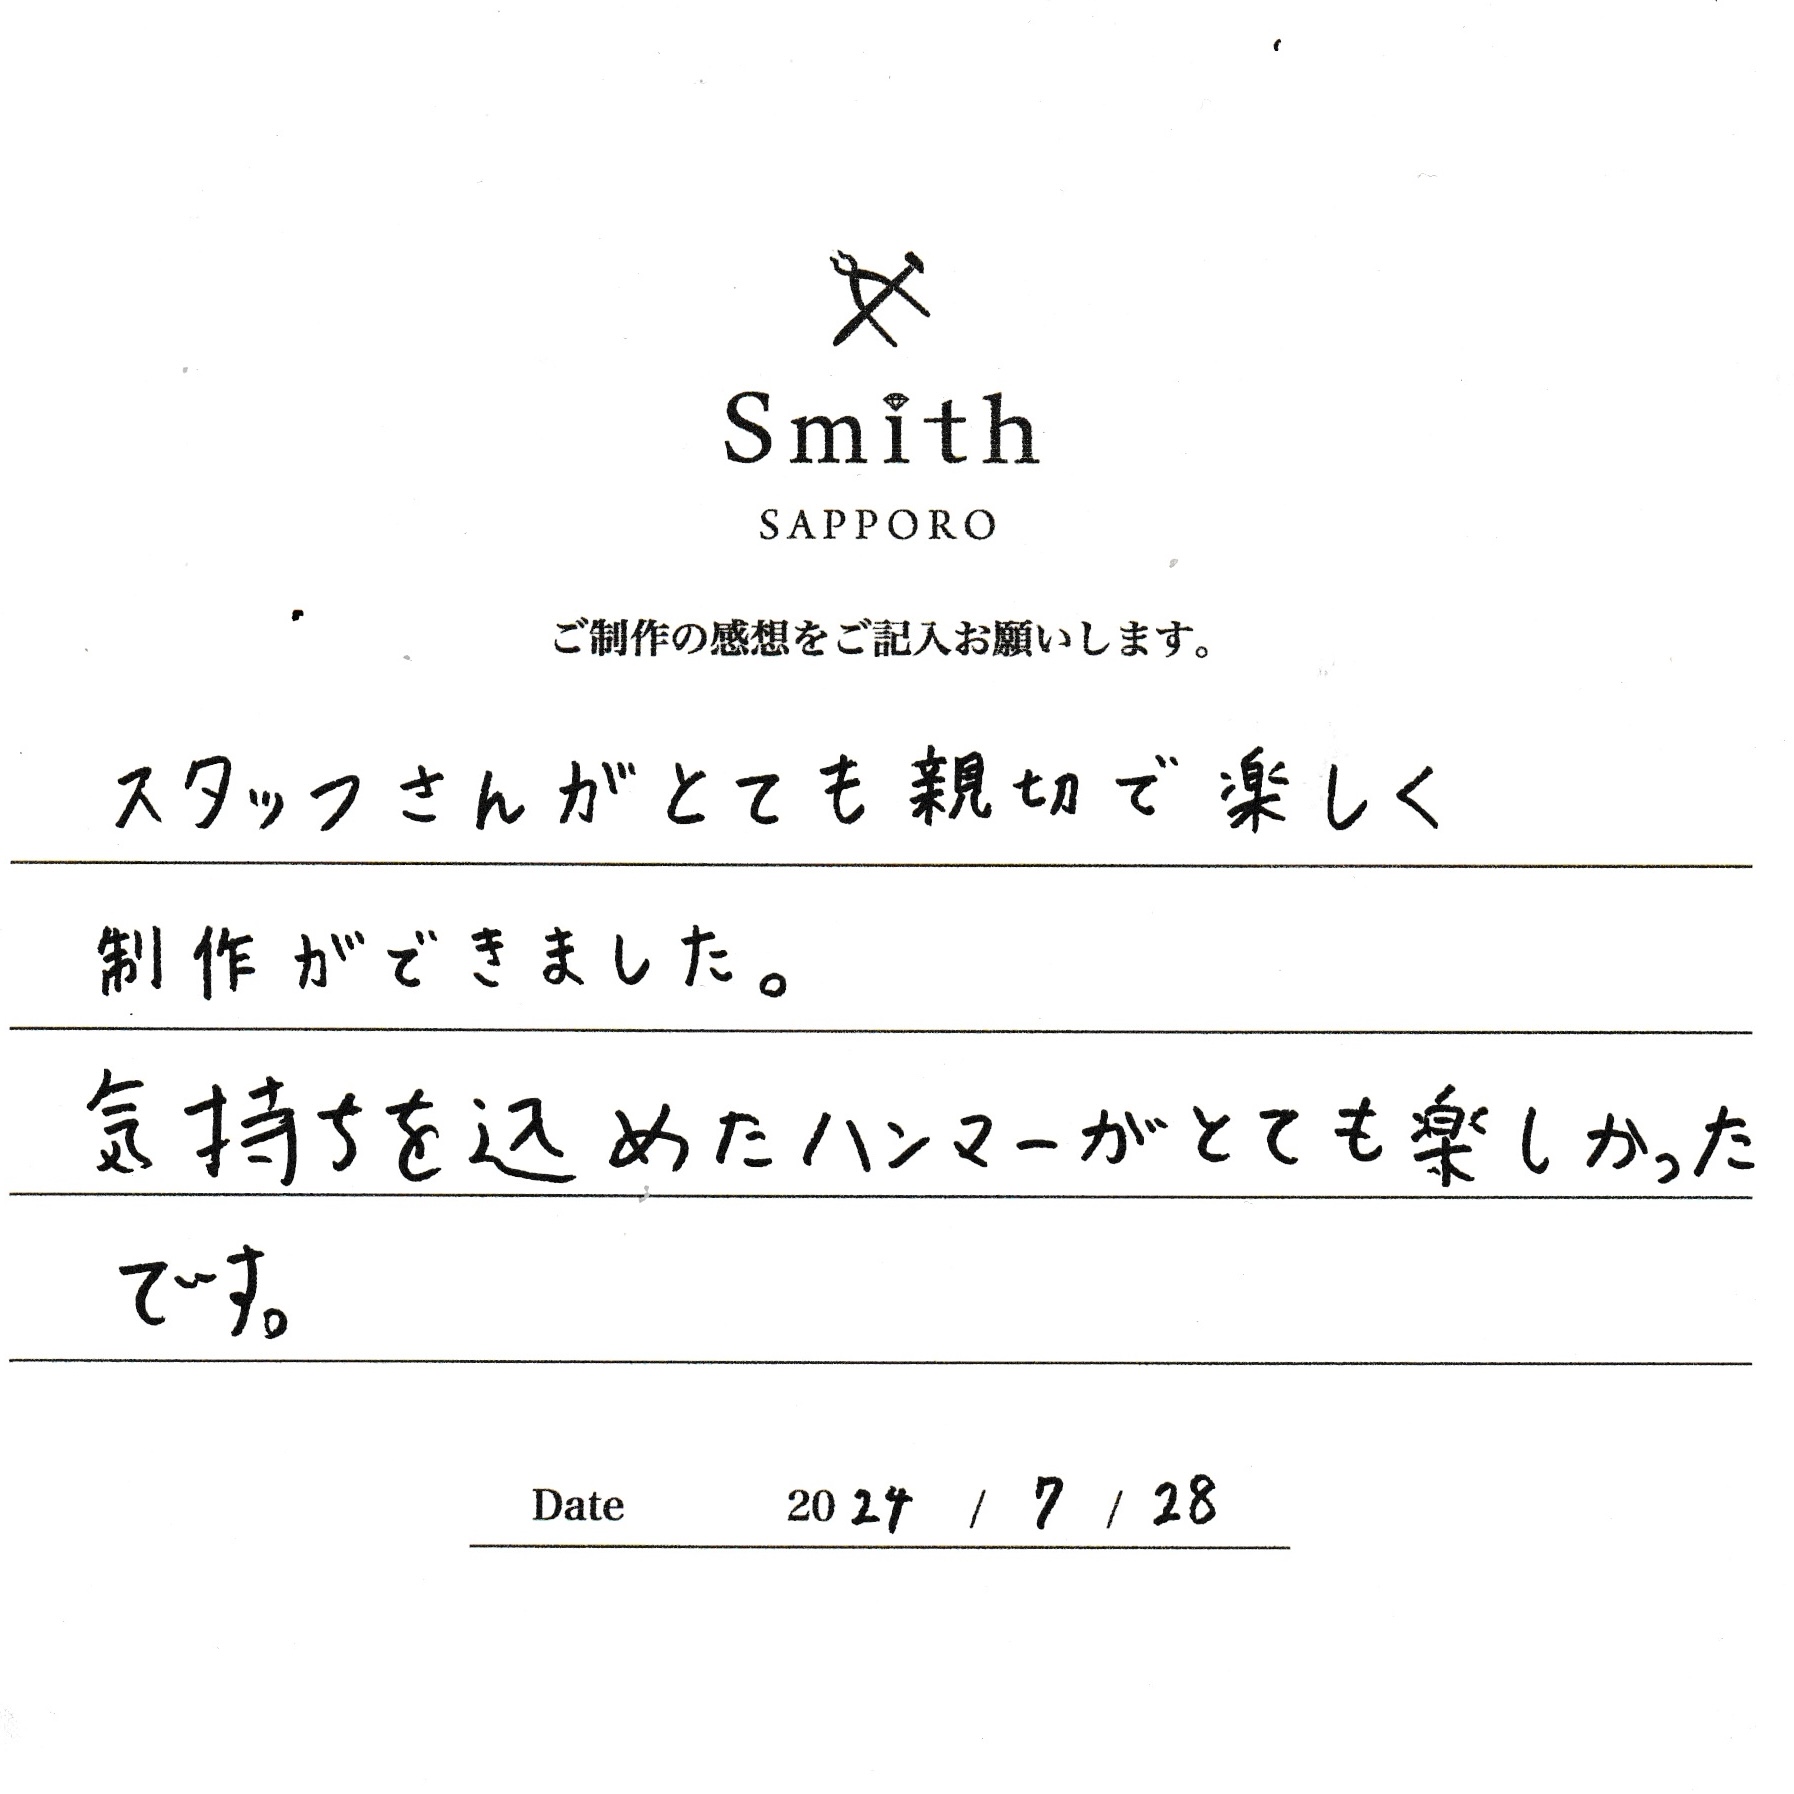 Smith
SAPPORO
ご制作の感想をご記入お願いします。
スタッフさんがとても親切で楽しく
制作ができました。
気持ちを込めたハンマーがとても楽しかった
です。
Date 2024 / 7 / 28